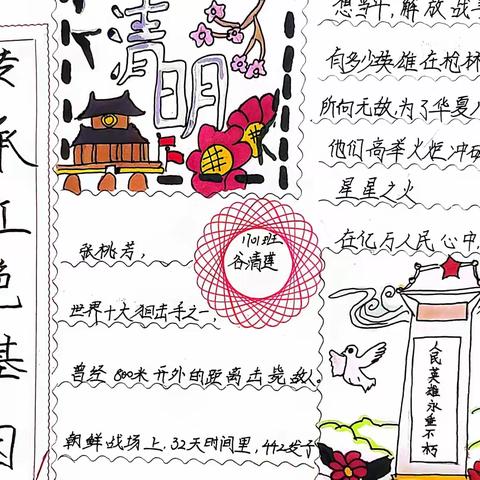 传承红色基因
清明
1701班
谷清莲
张桃芳，
世界十大狙击手之一，
曾经800米开外的距离击毙敌人。
朝鲜战场上，32天时间里，442发子
想当年，解放战争
有多少英雄在枪林
所向无敌，为了华夏人
他们高举火炬冲破
星星之火
在亿万人民心中，
人民英雄永垂不朽